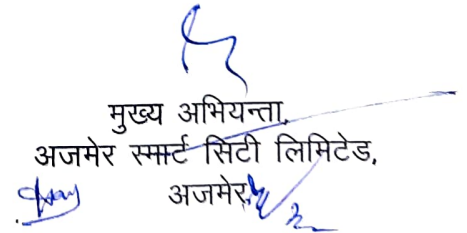 मुख्य अभियन्ता,
अजमेर स्मार्ट सिटी लिमिटेड,
अजमेर